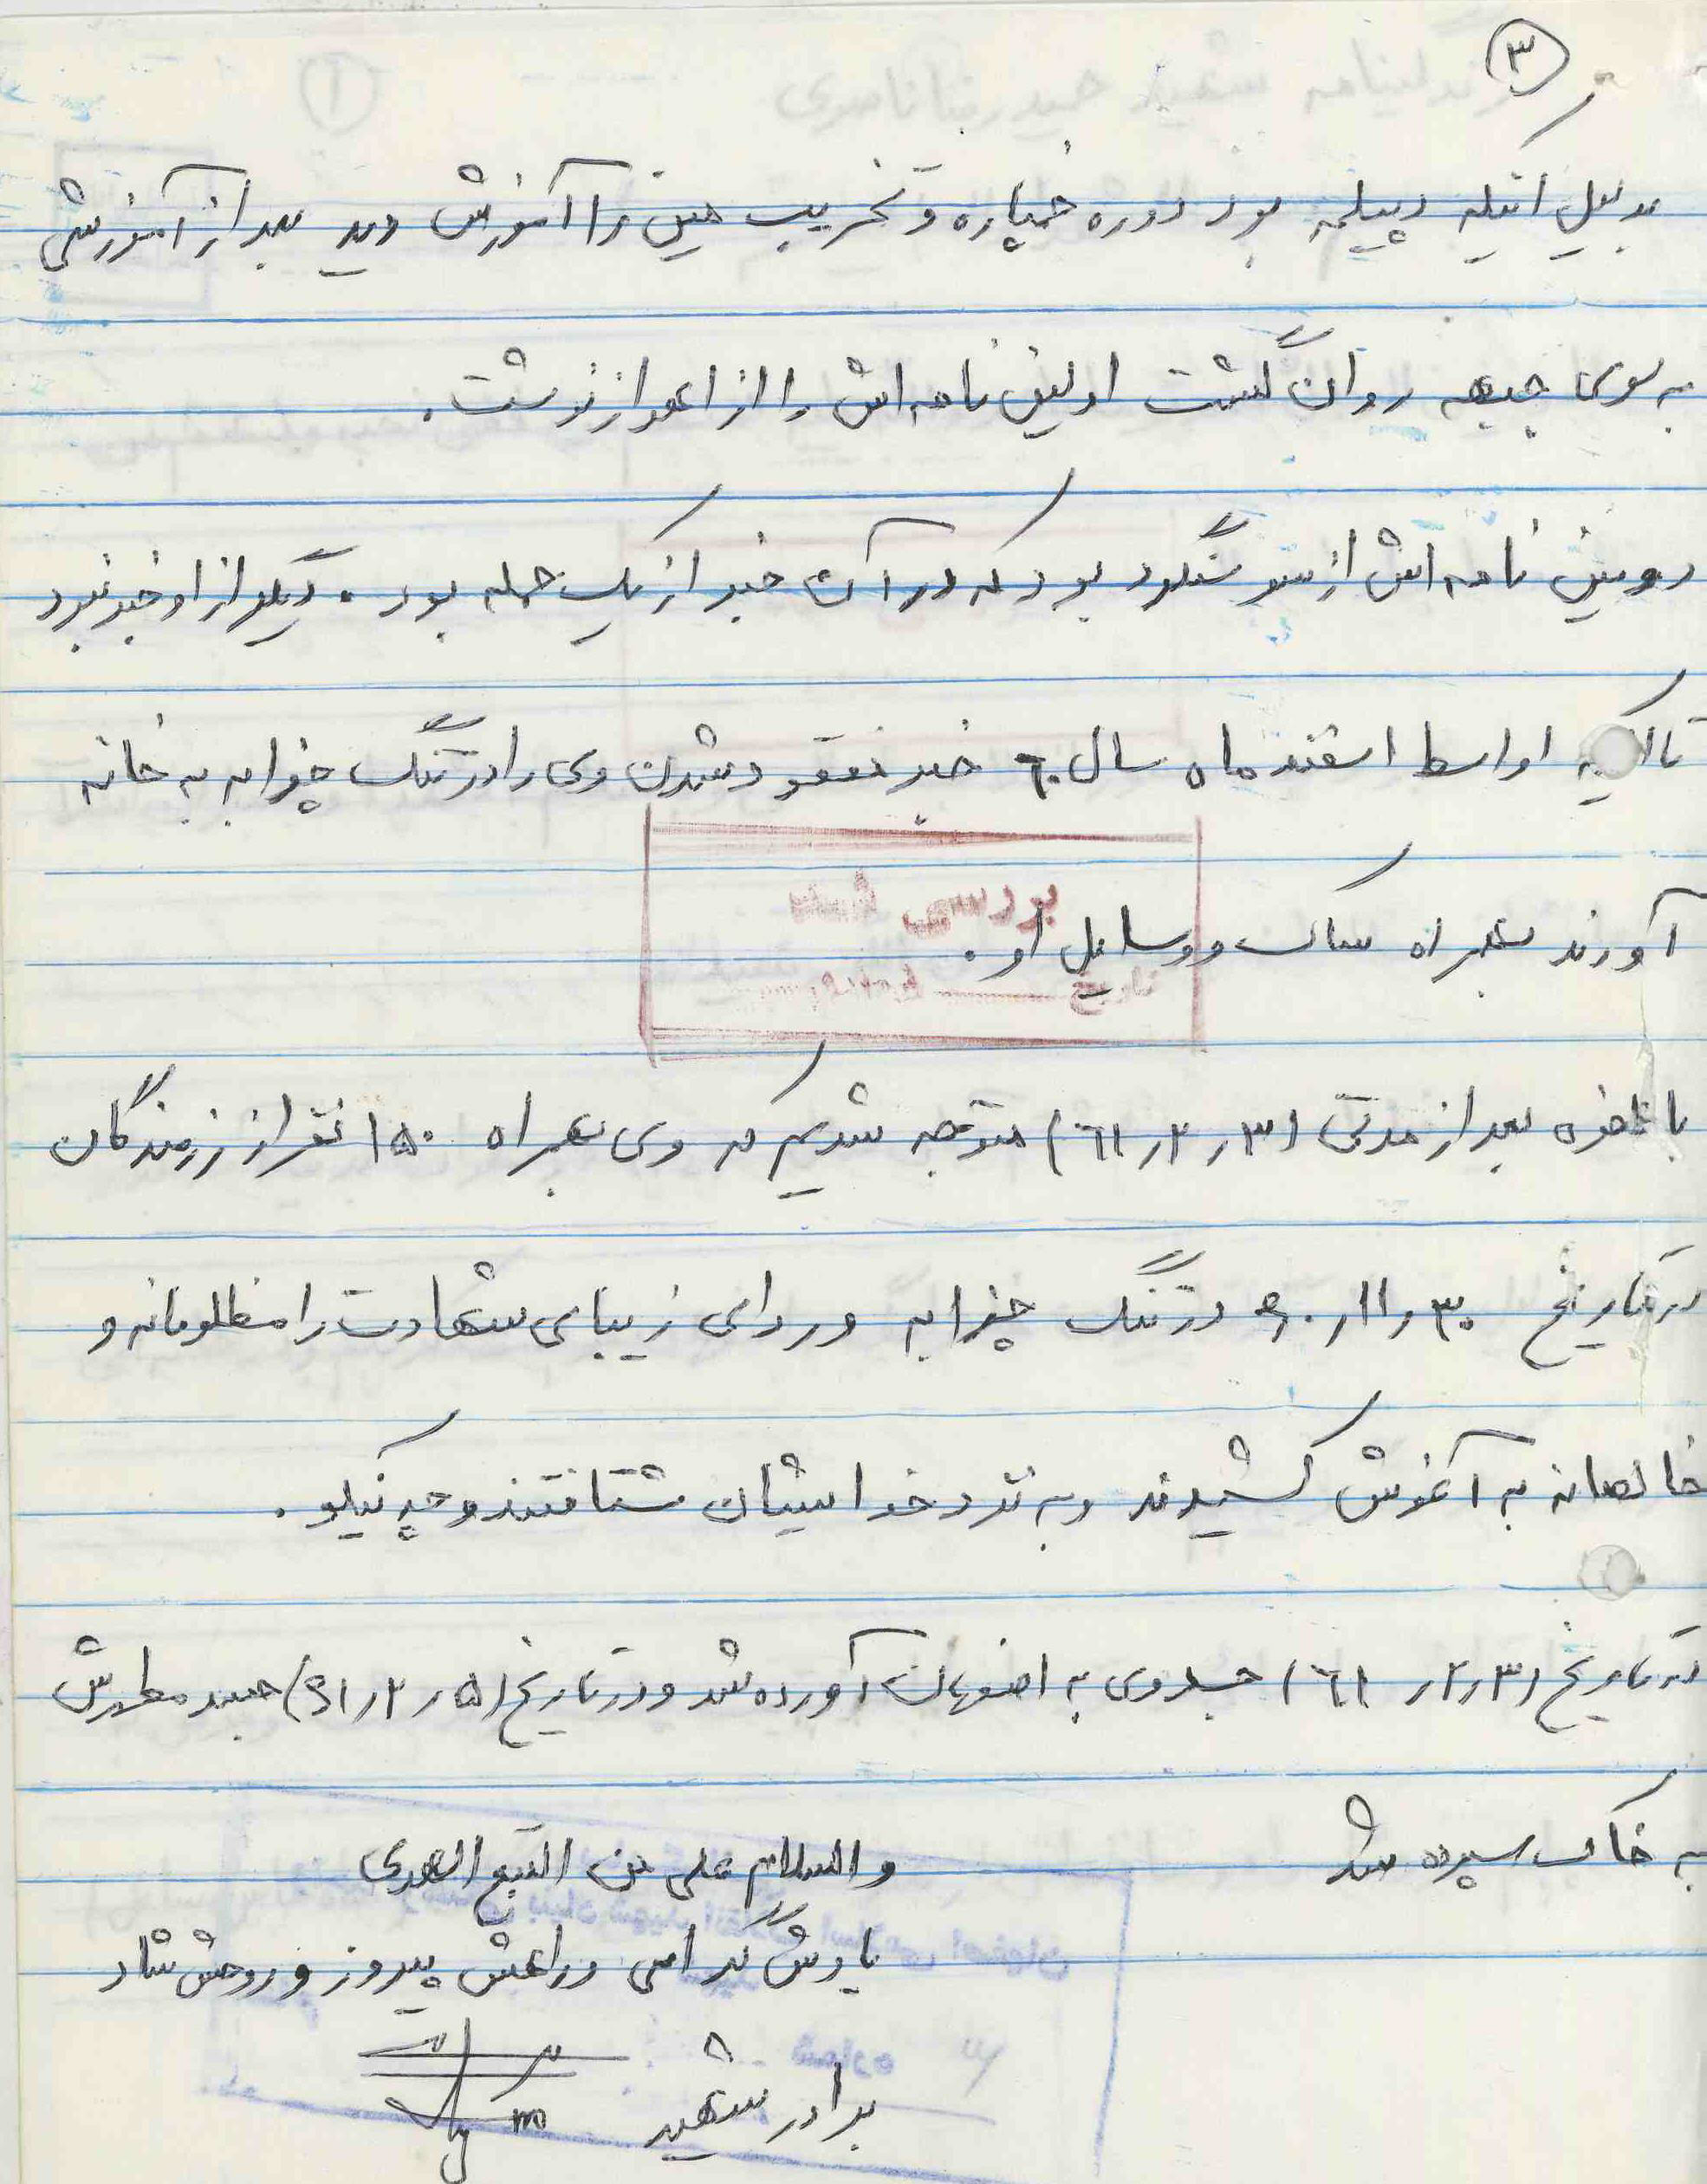 ۳
بدلیل اینکه دیپلمه بود دوره خمپاره و تخریب مین را آموزش دید بعد از آموزشی
به سوی جبهه روان گشت اولین نامه اش را از اهواز نوشت.
دومین نامه اش از سوسنگرد بود که در آن خبر از یک حمله بود. دیگر از او خبر نبود
تا اینکه اواسط اسفند ماه سال ۶۰ خبر مفقود شدن وی را در تنگ چزابه به خانه
آورند بهمراه ساک و وسایل او.
بررسی شد
تاریخ
بالاخره بعد از مدتی (۶۱٫۲٫۳) متوجه شدیم که وی بهمراه ۱۵۰ نفر از رزمندگان
در تاریخ ۶۰٫۱۱٫۳۰ در تنگ چزابه و ردای زیبای شهادت را مظلومانه و
خالصانه به آغوش کشیدند و به نزد خدایشان شتافتند و چه نیکو.
در تاریخ (۶۱٫۲٫۳) جسد وی به اصفهان آورده شد و در تاریخ (۶۱٫۲٫۵) جسد مطهرش
به خاک سپرده شد
والسلام علی من التبع الهدی
یادش گرامی و راهش پیروز و روحش شاد
برادر شهید